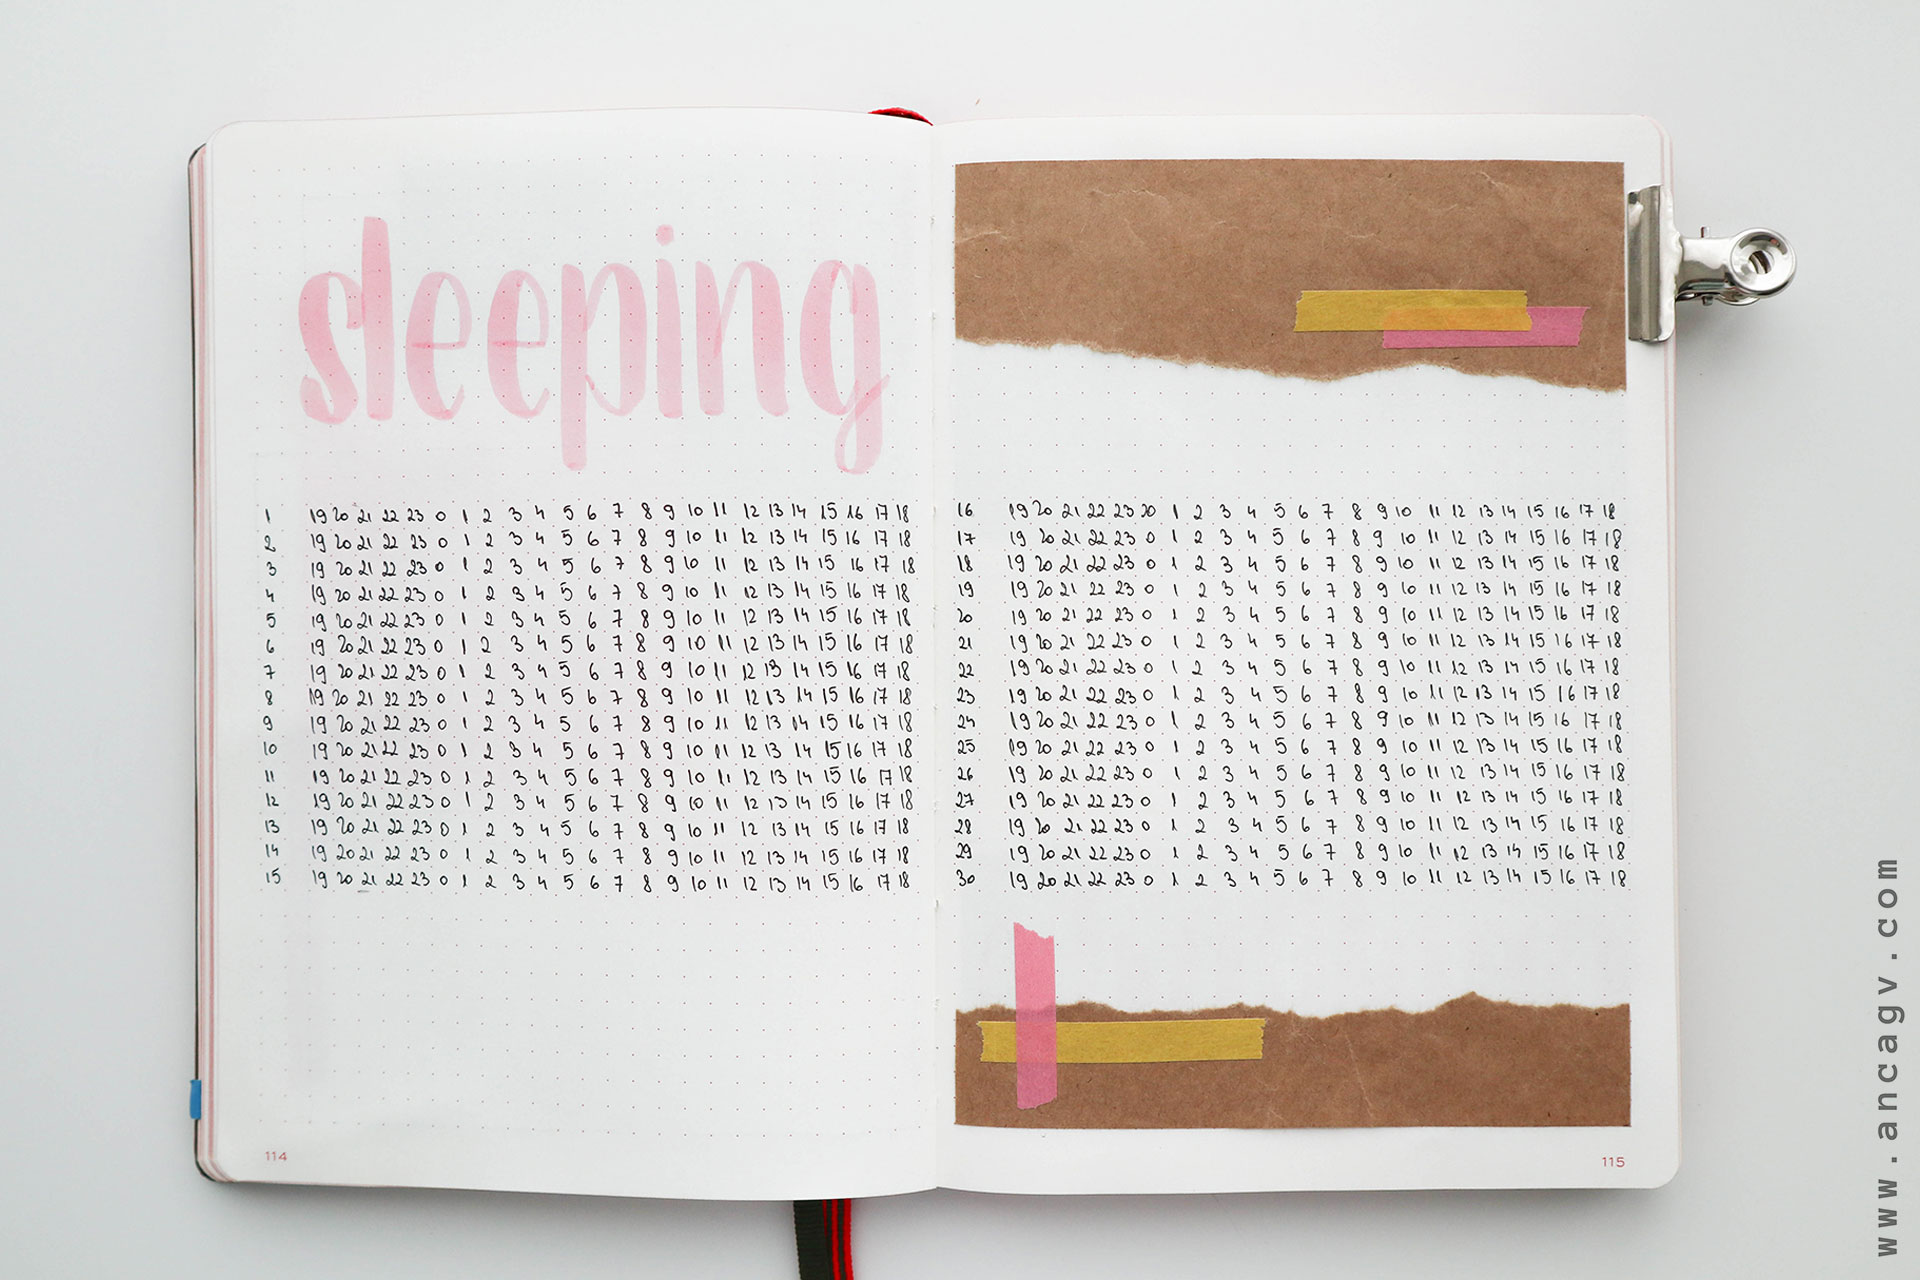 sleeping
1 19 20 21 22 23 0 1 2 3 4 5 6 7 8 9 10 11 12 13 14 15 16 17 18
2 19 20 21 22 23 0 1 2 3 4 5 6 7 8 9 10 11 12 13 14 15 16 17 18
3 19 20 21 22 23 0 1 2 3 4 5 6 7 8 9 10 11 12 13 14 15 16 17 18
4 19 20 21 22 23 0 1 2 3 4 5 6 7 8 9 10 11 12 13 14 15 16 17 18
5 19 20 21 22 23 0 1 2 3 4 5 6 7 8 9 10 11 12 13 14 15 16 17 18
6 19 20 21 22 23 0 1 2 3 4 5 6 7 8 9 10 11 12 13 14 15 16 17 18
7 19 20 21 22 23 0 1 2 3 4 5 6 7 8 9 10 11 12 13 14 15 16 17 18
8 19 20 21 22 23 0 1 2 3 4 5 6 7 8 9 10 11 12 13 14 15 16 17 18
9 19 20 21 22 23 0 1 2 3 4 5 6 7 8 9 10 11 12 13 14 15 16 17 18
10 19 20 21 22 23 0 1 2 3 4 5 6 7 8 9 10 11 12 13 14 15 16 17 18
11 19 20 21 22 23 0 1 2 3 4 5 6 7 8 9 10 11 12 13 14 15 16 17 18
12 19 20 21 22 23 0 1 2 3 4 5 6 7 8 9 10 11 12 13 14 15 16 17 18
13 19 20 21 22 23 0 1 2 3 4 5 6 7 8 9 10 11 12 13 14 15 16 17 18
14 19 20 21 22 23 0 1 2 3 4 5 6 7 8 9 10 11 12 13 14 15 16 17 18
15 19 20 21 22 23 0 1 2 3 4 5 6 7 8 9 10 11 12 13 14 15 16 17 18
114
16 19 20 21 22 23 20 1 2 3 4 5 6 7 8 9 10 11 12 13 14 15 16 17 18
17 19 20 21 22 23 0 1 2 3 4 5 6 7 8 9 10 11 12 13 14 15 16 17 18
18 19 20 21 22 23 0 1 2 3 4 5 6 7 8 9 10 11 12 13 14 15 16 17 18
19 19 20 21 22 23 0 1 2 3 4 5 6 7 8 9 10 11 12 13 14 15 16 17 18
20 19 20 21 22 23 0 1 2 3 4 5 6 7 8 9 10 11 12 13 14 15 16 17 18
21 19 20 21 22 23 0 1 2 3 4 5 6 7 8 9 10 11 12 13 14 15 16 17 18
22 19 20 21 22 23 0 1 2 3 4 5 6 7 8 9 10 11 12 13 14 15 16 17 18
23 19 20 21 22 23 0 1 2 3 4 5 6 7 8 9 10 11 12 13 14 15 16 17 18
24 19 20 21 22 23 0 1 2 3 4 5 6 7 8 9 10 11 12 13 14 15 16 17 18
25 19 20 21 22 23 0 1 2 3 4 5 6 7 8 9 10 11 12 13 14 15 16 17 18
26 19 20 21 22 23 0 1 2 3 4 5 6 7 8 9 10 11 12 13 14 15 16 17 18
27 19 20 21 22 23 0 1 2 3 4 5 6 7 8 9 10 11 12 13 14 15 16 17 18
28 19 20 21 22 23 0 1 2 3 4 5 6 7 8 9 10 11 12 13 14 15 16 17 18
29 19 20 21 22 23 0 1 2 3 4 5 6 7 8 9 10 11 12 13 14 15 16 17 18
30 19 20 21 22 23 0 1 2 3 4 5 6 7 8 9 10 11 12 13 14 15 16 17 18
115
www.ancagv.com